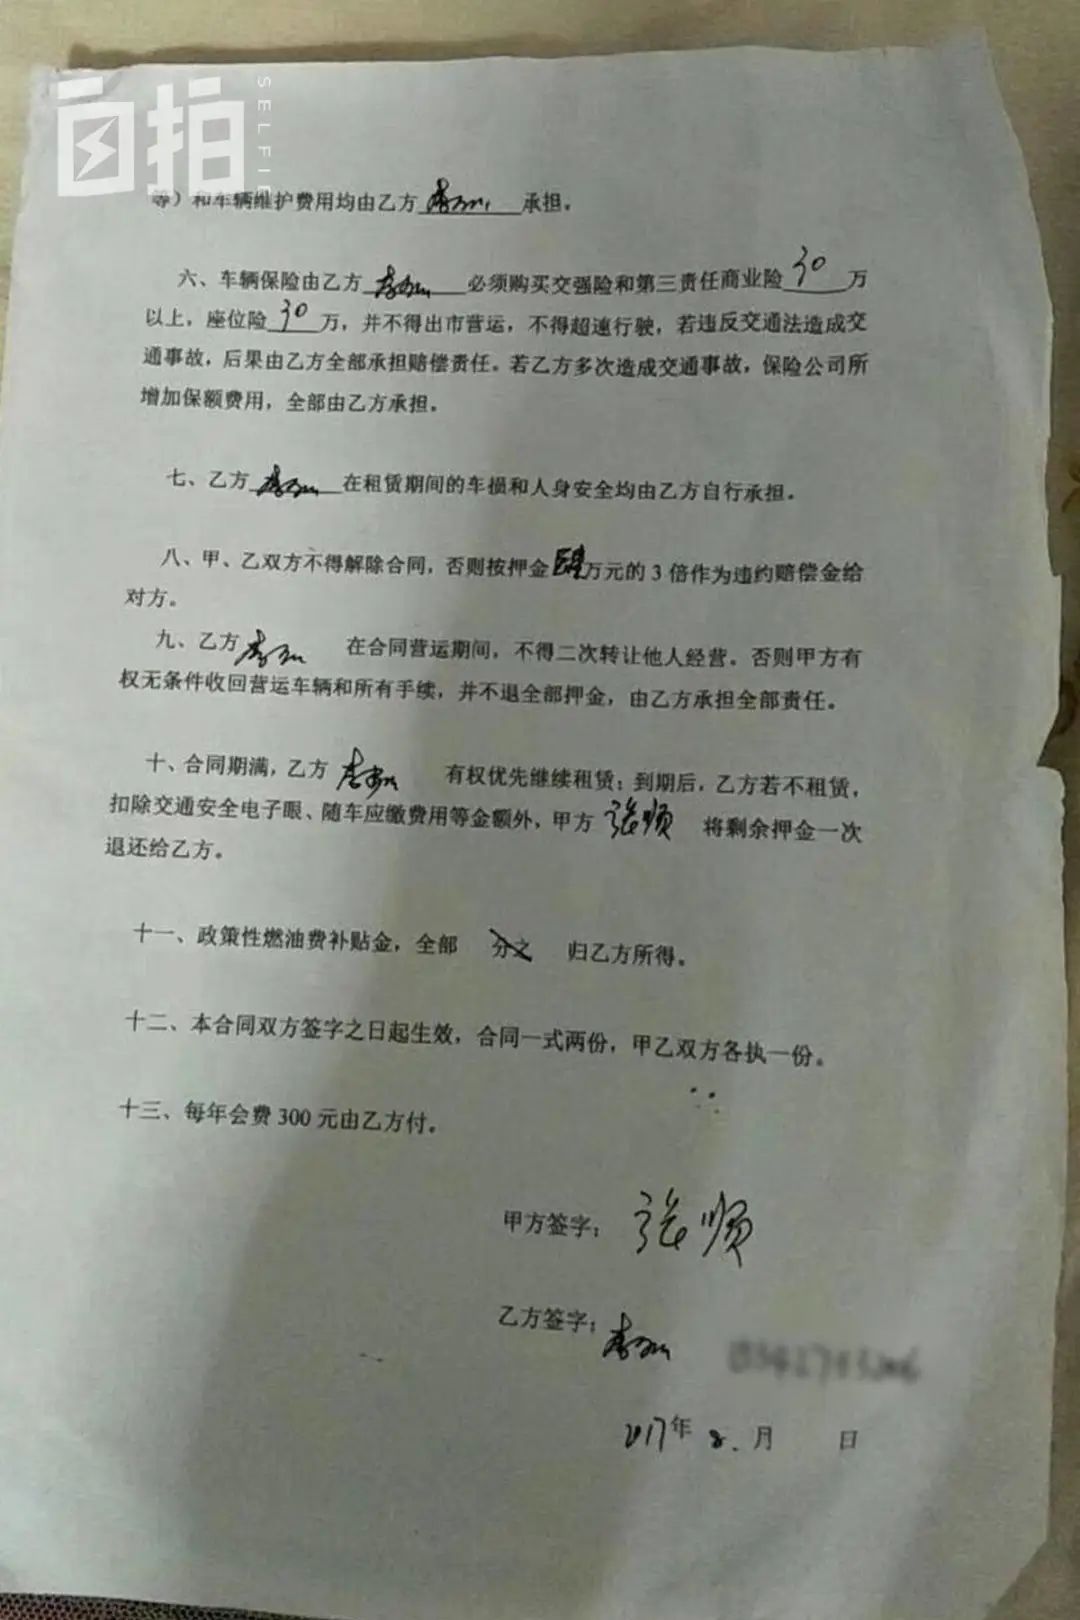 自拍
SELFIE
等）和车辆维护费用均由乙方 承担。
六、车辆保险由乙方 必须购买交强险和第三责任商业险 30 万
以上，座位险 30 万，并不得出市营运，不得超速行驶，若违反交通法造成交
通事故，后果由乙方全部承担赔偿责任。若乙方多次造成交通事故，保险公司所
增加保额费用，全部由乙方承担。
七、乙方 在租赁期间的车损和人身安全均由乙方自行承担。
八、甲、乙双方不得解除合同，否则按押金 万元的 3 倍作为违约赔偿金给
对方。
九、乙方 在合同营运期间，不得二次转让他人经营。否则甲方有
权无条件收回营运车辆和所有手续，并不退全部押金，由乙方承担全部责任。
十、合同期满，乙方 有权优先继续租赁；到期后，乙方若不租赁，
扣除交通安全电子眼、随车应缴费用等金额外，甲方 张顺 将剩余押金一次
退还给乙方。
十一、政策性燃油费补贴金，全部 分之 归乙方所得。
十二、本合同双方签字之日起生效，合同一式两份，甲乙双方各执一份。
十三、每年会费 300 元由乙方付。
甲方签字：张顺
乙方签字：
2017年 2. 月 日